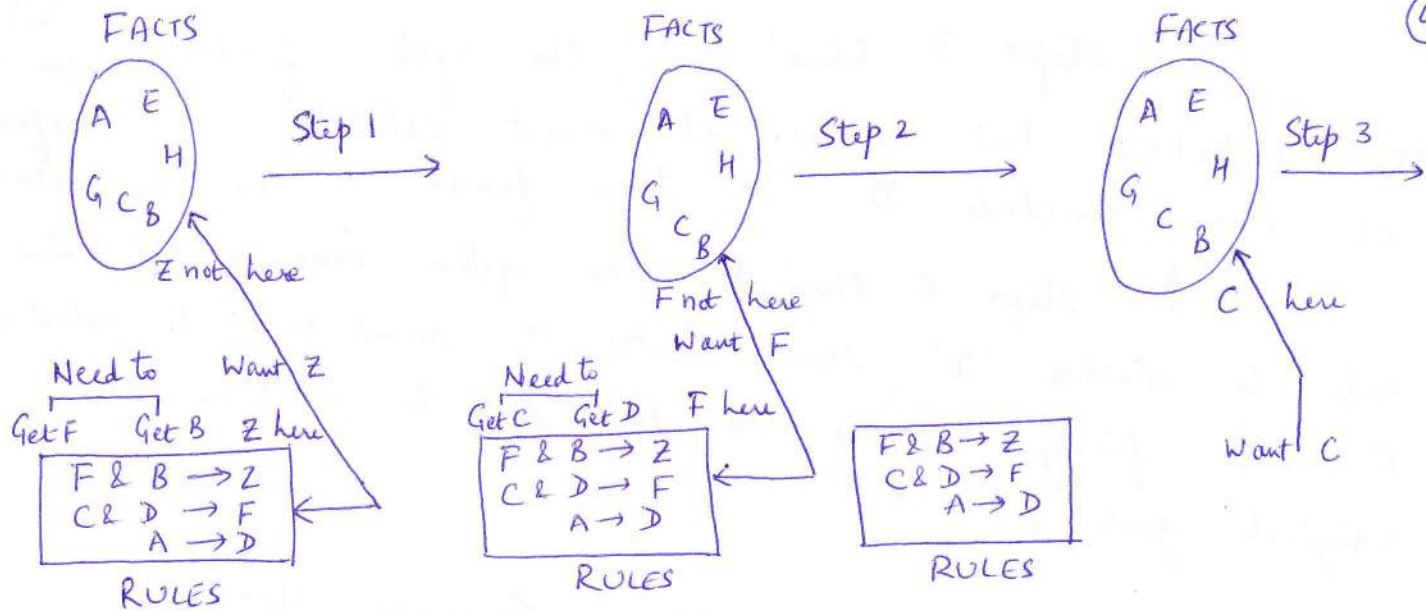 FACTS
A E
H
G C B
Z not here
Want Z
Need to
Get F Get B Z here
F & B → Z
C & D → F
A → D
RULES
Step 1
FACTS
A E
H
G
C
B
F not here
Want F
Need to
Get C Get D F here
F & B → Z
C & D → F
A → D
RULES
Step 2
FACTS
A E
H
G
C
B
C here
Want C
F & B → Z
C & D → F
A → D
RULES
Step 3